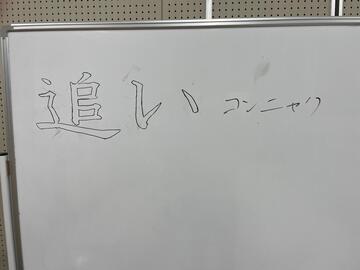 追い コンニャク